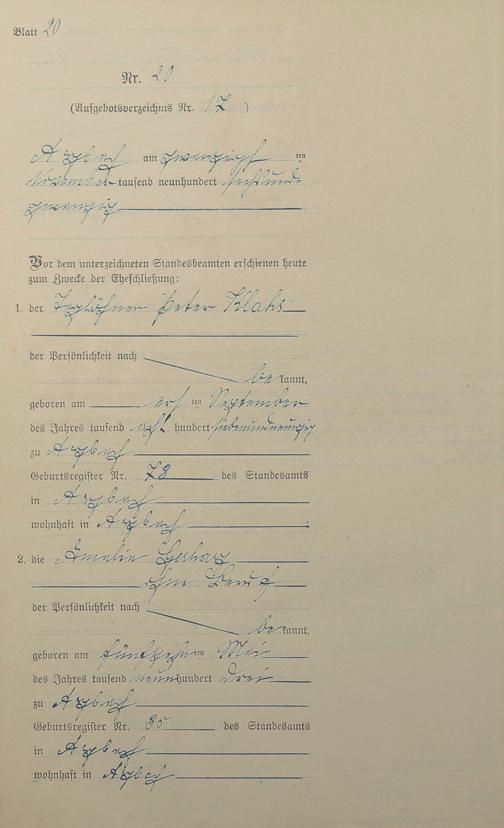 Blatt 20
Nr. 20
(Aufgebotsverzeichnis Nr. 17)
Arzbach am zwanzigsten
November tausend neunhundert sechsund-
zwanzig
Vor dem unterzeichneten Standesbeamten erschienen heute
zum Zwecke der Eheschließung:
1. der Taglöhner Peter Klahs
der Persönlichkeit nach
be kannt,
geboren am ten September
des Jahres tausend acht hundert siebenundneunzig
zu Arzbach
Geburtsregister Nr. 78 des Standesamts
in Arzbach
wohnhaft in Arzbach;
2. die Amalie
ohne Beruf
der Persönlichkeit nach
be kannt,
geboren am fünfzehnten Mai
des Jahres tausend neunhundert drei
zu Arzbach
Geburtsregister Nr. 35 des Standesamts
in Arzbach
wohnhaft in Arzbach